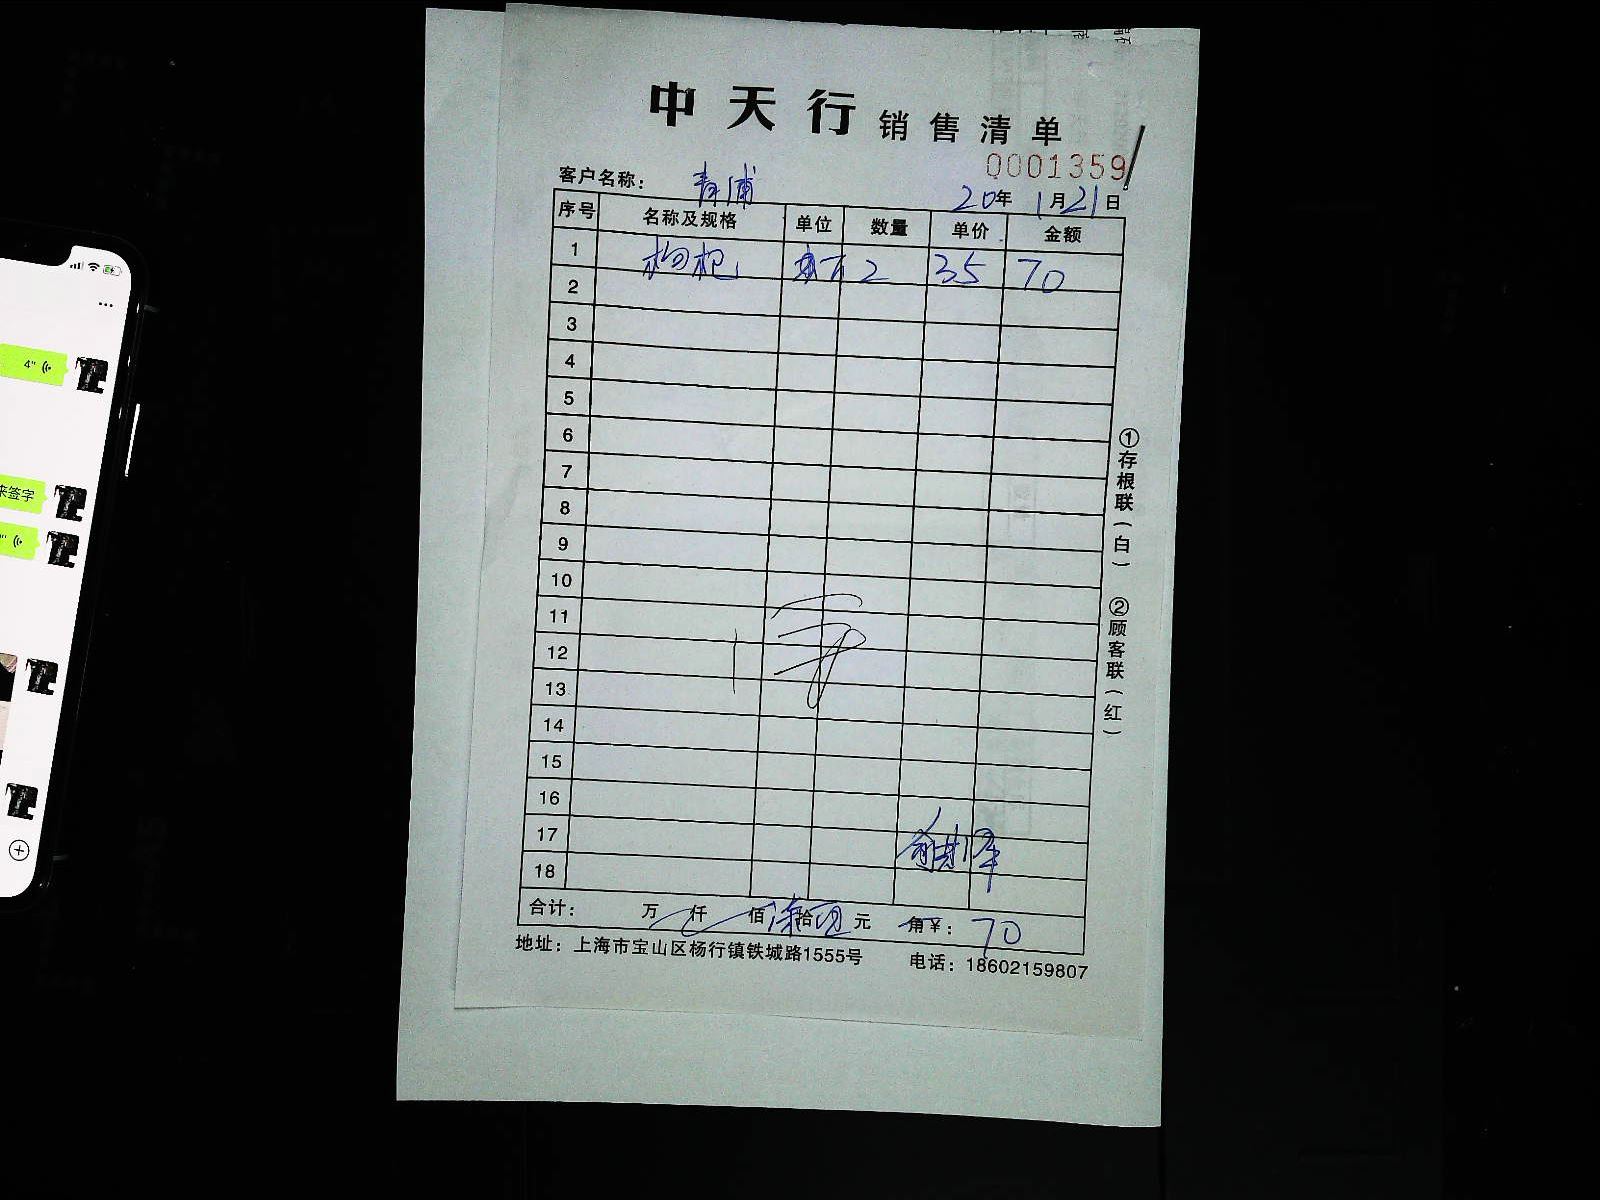 中天行 销售清单
0001359
客户名称： 青浦
20年1月21日
序号 名称及规格 单位 数量 单价 金额
1 枸杞 斤 2 35 70
2
3
4
5
6
7
8
9
10
11
12
13
14
15
16
17
18
合计： 万 仟 佰 柒拾 元 角 ¥：70
地址：上海市宝山区杨行镇铁城路1555号 电话：18602159807
①存根联(白) ②顾客联(红)
4"
来签字